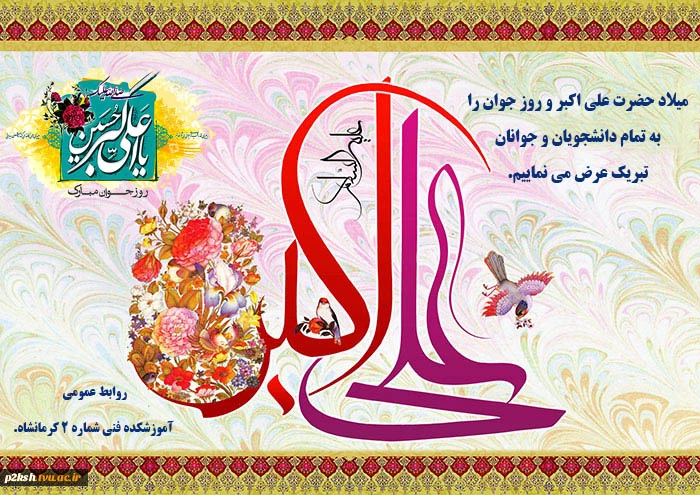 میلاد حضرت علی اکبر و روز جوان را
به تمام دانشجویان و جوانان
تبریک عرض می نماییم.
علی اکبر
علیه السلام
یا علی اکبر حسین
روز جوان مبارک
روابط عمومی
آموزشکده فنی شماره ۲ کرمانشاه.
p2ksh.tvu.ac.ir